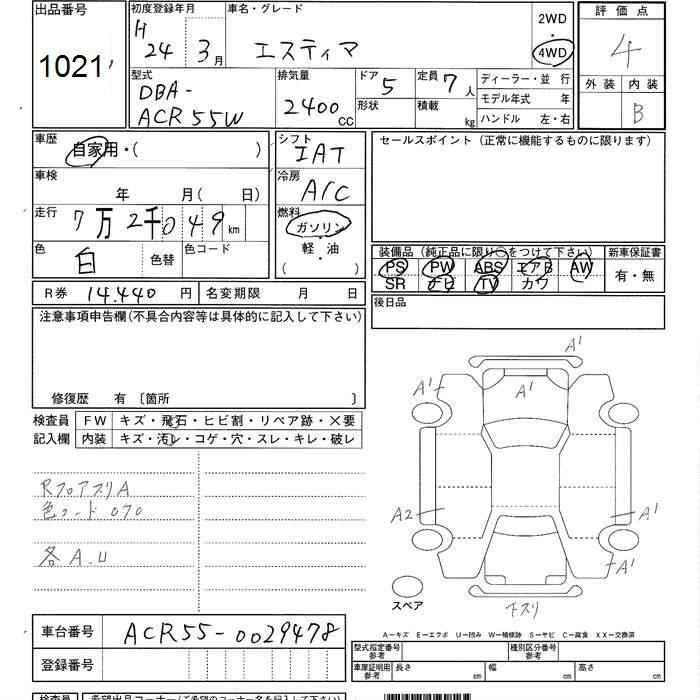 出品番号
1021
初度登録年月
H
24 3月
車名・グレード
エスティマ
2WD
・
4WD
評価点
4
外装 内装
B
型式
DBA-
ACR55W
排気量
2400
CC
ドア 5
形状
定員 7人
積載 kg
ディーラー・並行
モデル年式 年
ハンドル 左・右
車歴
自家用・( )
車検
年 月(日)
走行 7万2千049km
色
白 色替
色コード
シフト
IAT
冷房
A/C
燃料
ガソリン
・
軽・油
( )
セールスポイント(正常に機能するものに限ります)
装備品(純正品に限り○をつけて下さい)
PS PW ABS エアB AW
SR ナビ TV カワ
新車保証書
有・無
R券 14.440円
名変期限 月 日
後日品
注意事項申告欄(不具合内容等は具体的に記入して下さい)
修復歴 有〔箇所 〕
検査員
記入欄
FW キズ・飛石・ヒビ割・リペア跡・×要
内装 キズ・汚レ・コゲ・穴・スレ・キレ・破レ
RフロアスリA
色コード 070
各A.U
A' A' A'
A2 A'
A'
スペア
下スリ
車台番号 ACR55-0029478
登録番号
A－キズ E－エクボ U－凹み W－補修跡 S－サビ C－腐食 XX－交換済
型式指定番号
参考
種別区分番号
参考
車庫証明用
参考
長さ cm 幅 cm 高さ cm
検査員 希望出品コーナー(ご希望のコーナー名を記入下さい)